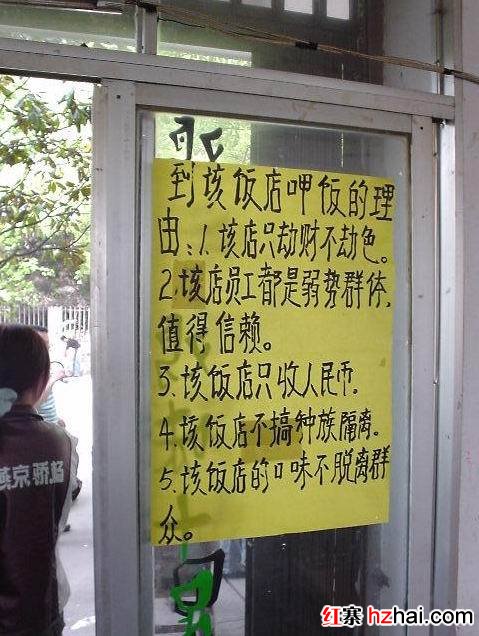 到该饭店呷饭的理
由:1.该店只劫财不劫色。
2.该店员工都是弱势群体,
值得信赖。
3.该饭店只收人民币.
4.该饭店不搞种族隔离.
5.该饭店的口味不脱离群
众。
燕京骄杨
红寨 hzhai.com